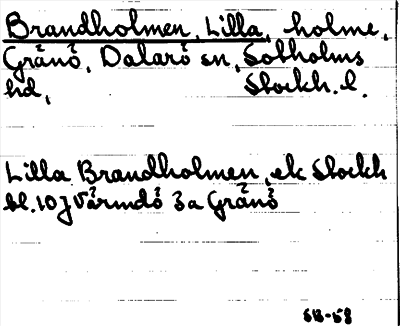 Brandholmen, Lilla, holme,
Grånö, Dalarö sn, Sotholms
hd, Stockh. l.
Lilla Brandholmen, ek Stockh
bl. 10 j Värmdö 3 a Gränö